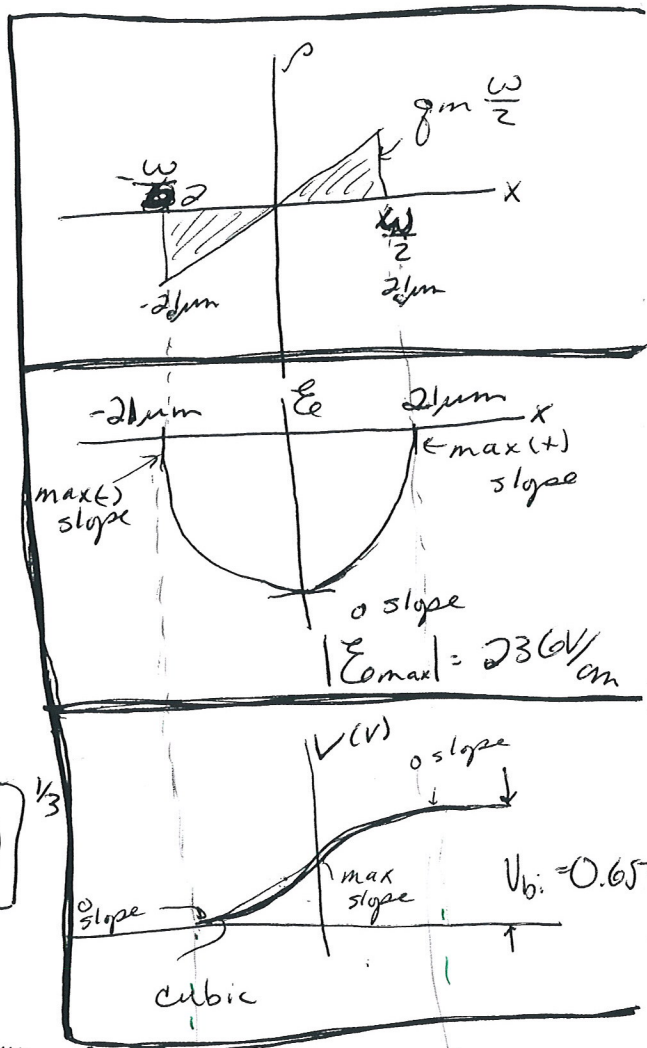 ρ
qm ω/2
-ω/2
x
ω/2
-2μm
2μm
-2μm
ℰ
2μm
x
max(-)
slope
←max(+)
slope
0 slope
|ℰmax| = 236V/cm
1/3
V(V)
0 slope
0
slope
max
slope
Vbi=0.65
cubic